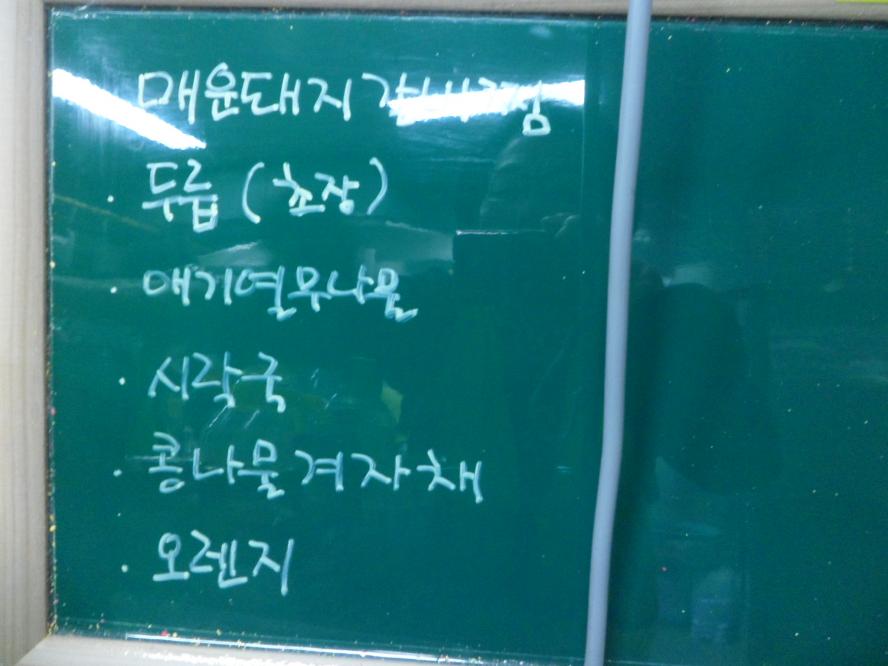 매운돼지갈비찜
· 두릅 (초장)
· 애기열무나물
· 시락국
· 콩나물겨자채
· 오렌지